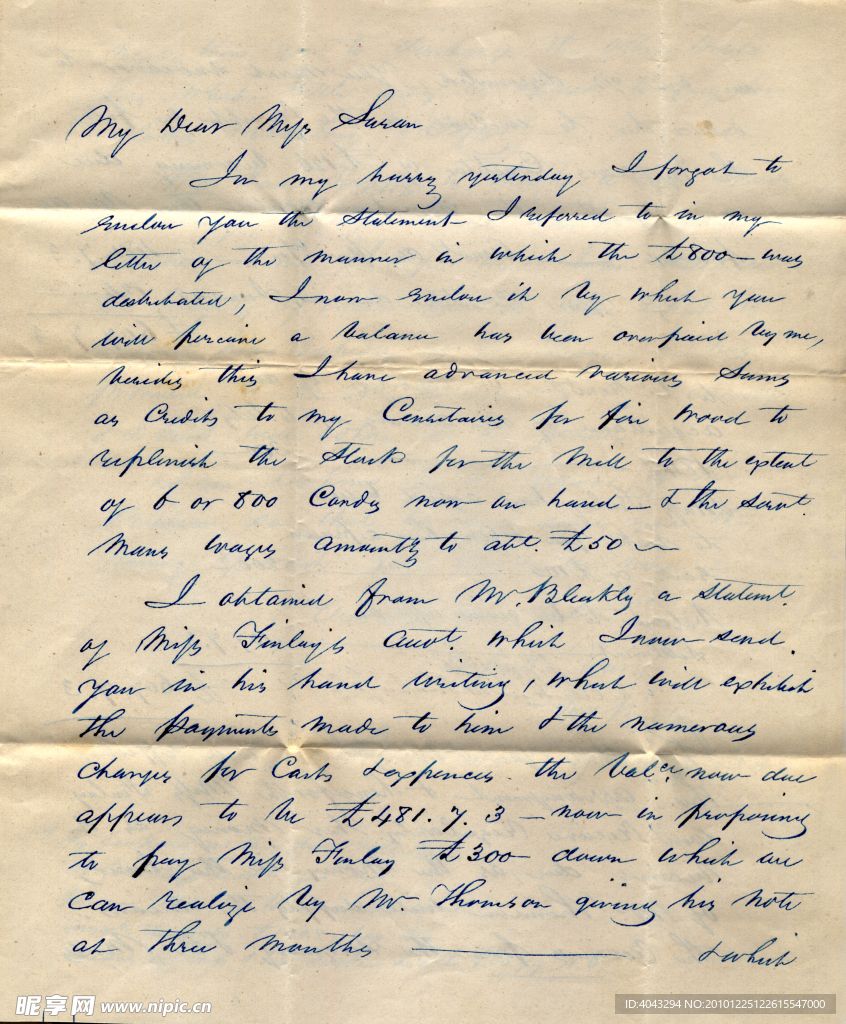 My Dear Miss Sarah
In my hurry yesterday I forgot to
enclose you the Statement I referred to in my
letter of the manner in which the £800 – was
destributed; I now enclose it by which you
will perceive a balance has been overpaid by me,
besides this I have advanced various Sums
as Credits to my Censitaires for fire wood to
replenish the Stock for the Mill to the extent
of 6 or 800 Cords now on hand – & the
Mans wages amounts to abt. £50 –
I obtained from Mr. Bleakly a Statemt.
of Miss Finlay's Acct. which I now send
you in his hand writing, which will exhibit
the payments made to him & the numerous
charges for Costs & expences. the Balce. now due
appears to be £481. 7. 3 – now in proposing
to pay Miss Finlay £300 down which we
can realize by Mr. Thomson giving his Note
at three months ——— & which
昵享网 www.nipic.cn
ID:4043294 NO:20101225122615547000